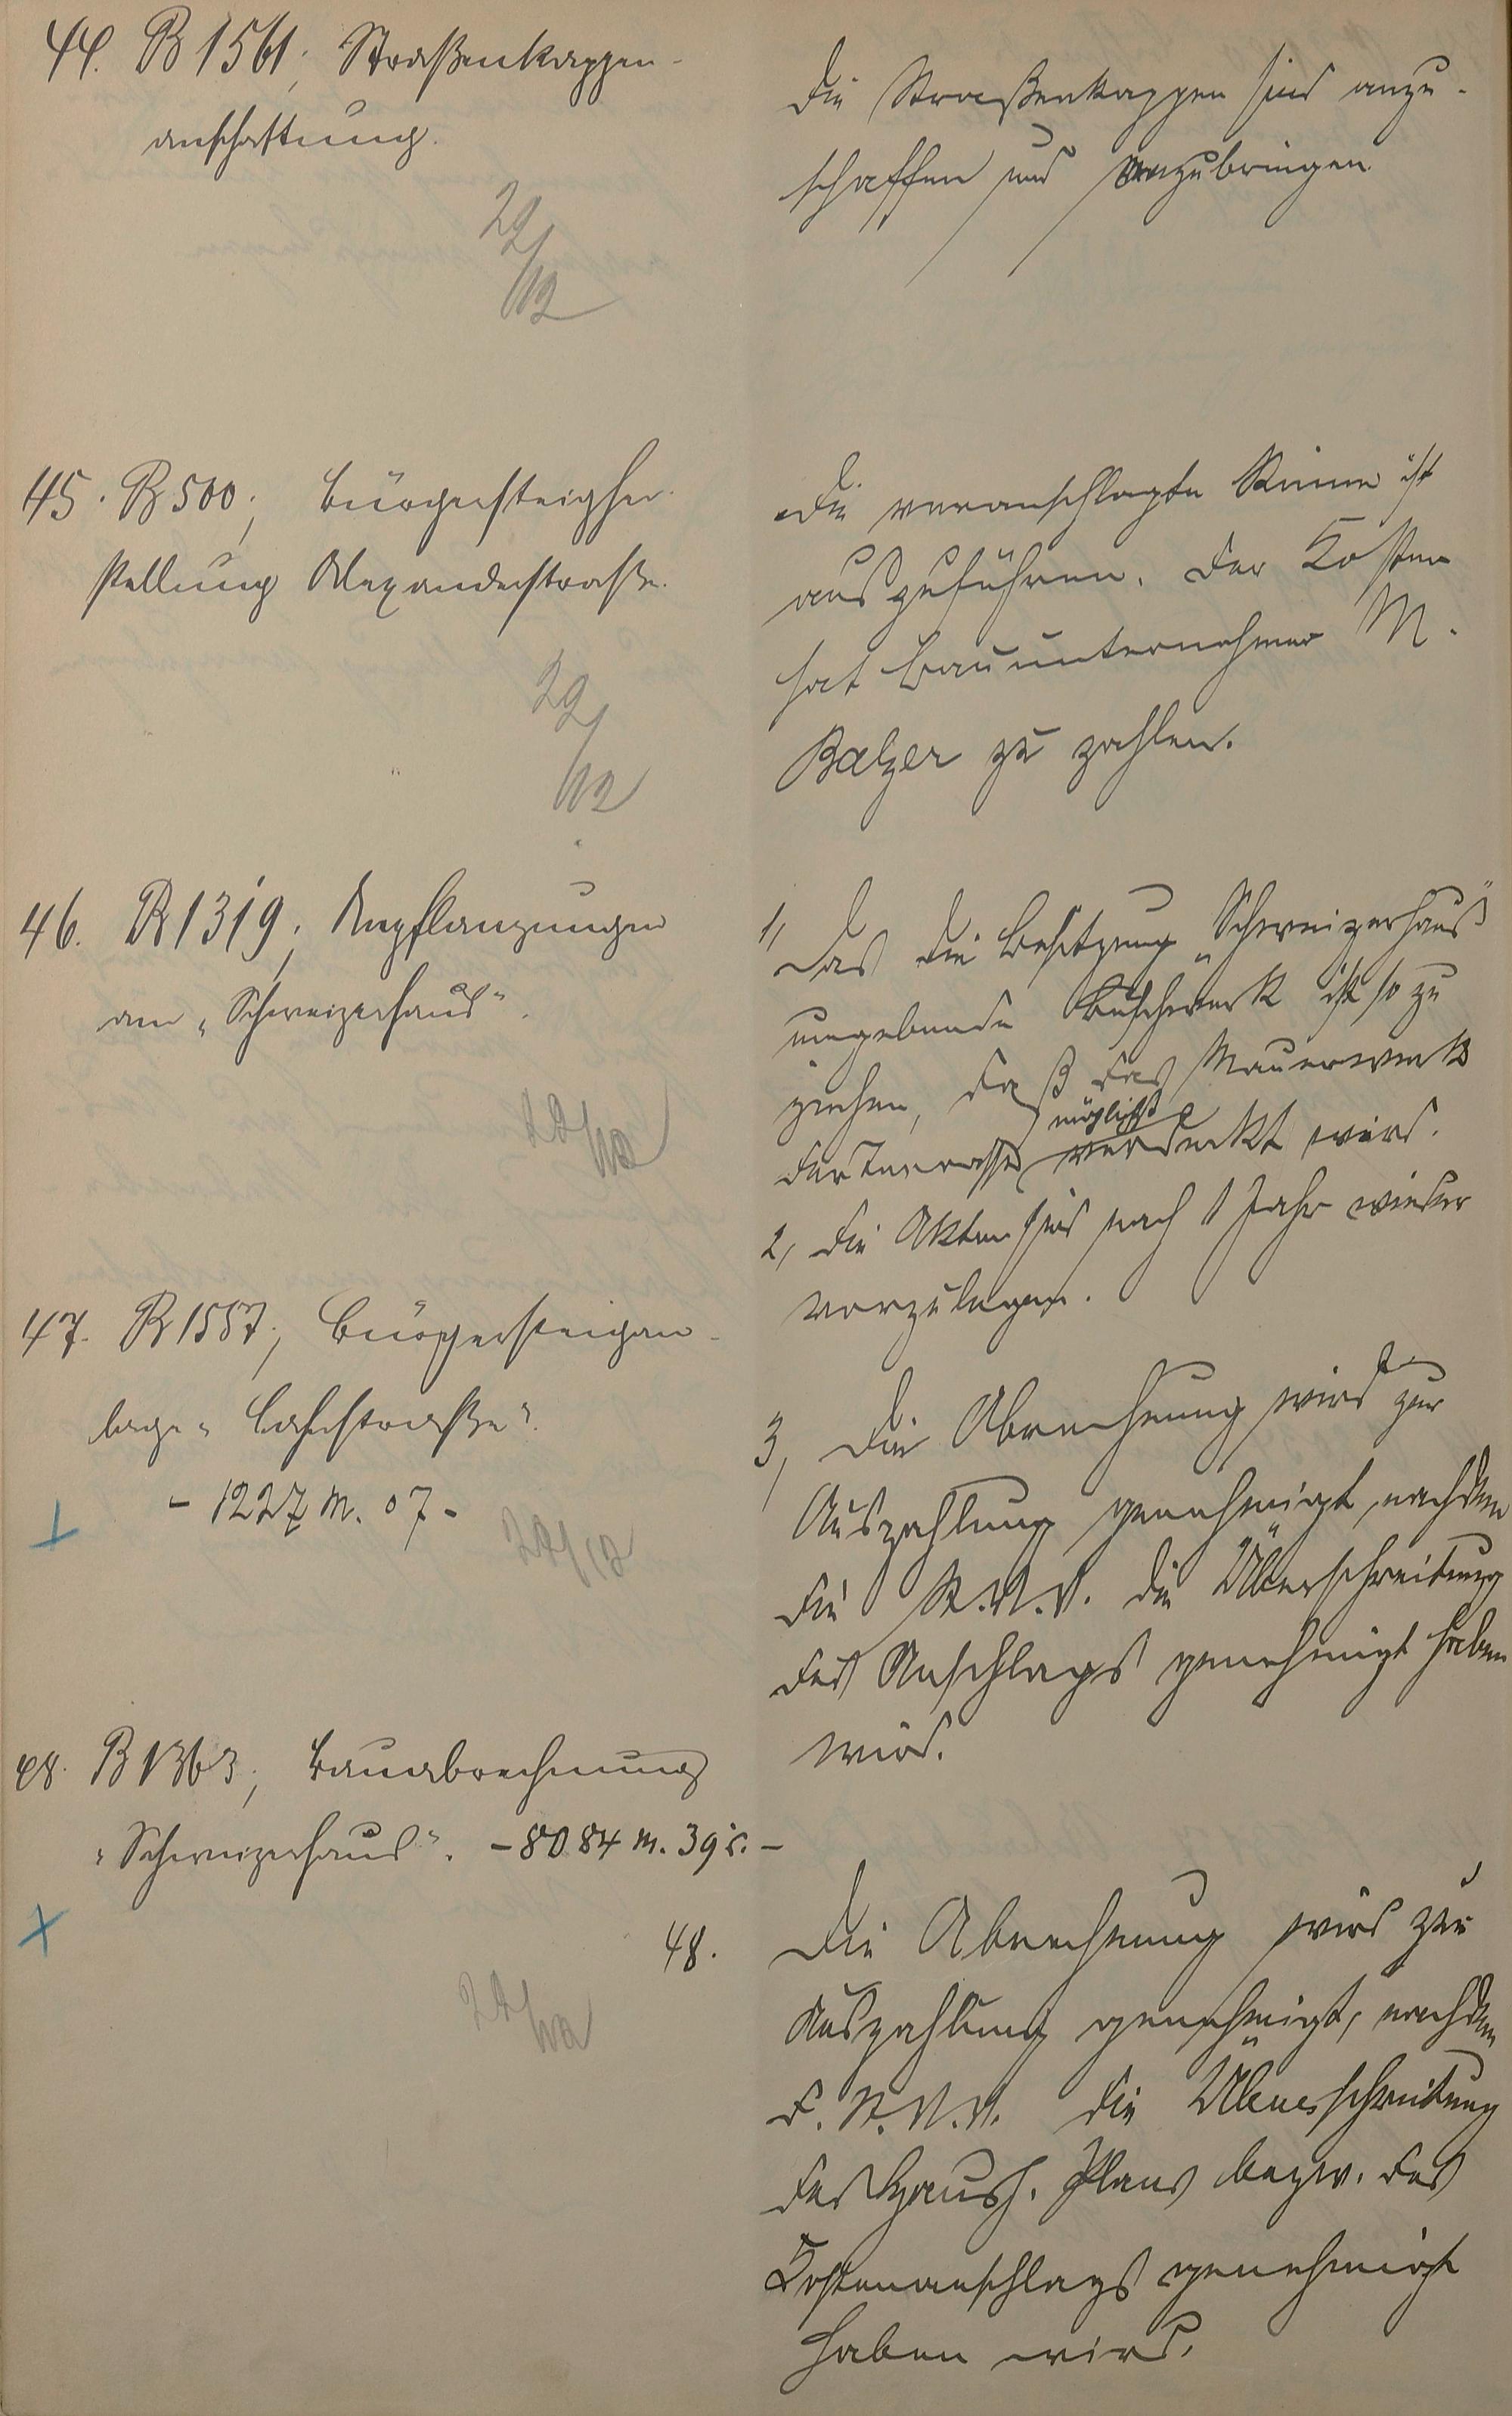 44. B 1561; Straßenkappen-
anschaffung.
29/12
Die Straßenkappen sind anzu-
schaffen und anzubringen.
45. B 500; Bürgersteigher-
stellung Alexanderstraße.
29/12
Die veranschlagte Rinne ist
auszuführen. Der Kosten
hat Bauunternehmer M.
Balzer zu zahlen.
46. B 1319; Anpflanzungen
am „Schweizerhaus“.
29/12
1, Das die Besitzung „Schweizerhaus“
umgebende Buschwerk ist so zu
ziehen, daß das Mauerwerk
möglichst
der Terrasse verdeckt wird.
2, Die Akten sind nach 1 Jahr wieder
vorzulegen.
47. B 1557; Bürgersteigan-
lage „Bahnstraße“.
- 1227 M. 07 -
29/12
3, Die Abrechnung wird zur
Auszahlung genehmigt, nachdem
die St.V.V. die Überschreitung
des Anschlags genehmigt haben
wird.
48. B 1363; Bauabrechnung
„Schweizerhaus“. - 8084 M. 39 -
29/12
48. Die Abrechnung wird zur
Auszahlung genehmigt, nachdem
d. St.V.V. die Überschreitung
des Haush. Plans bezw. des
Kostenanschlags genehmigt
haben wird.